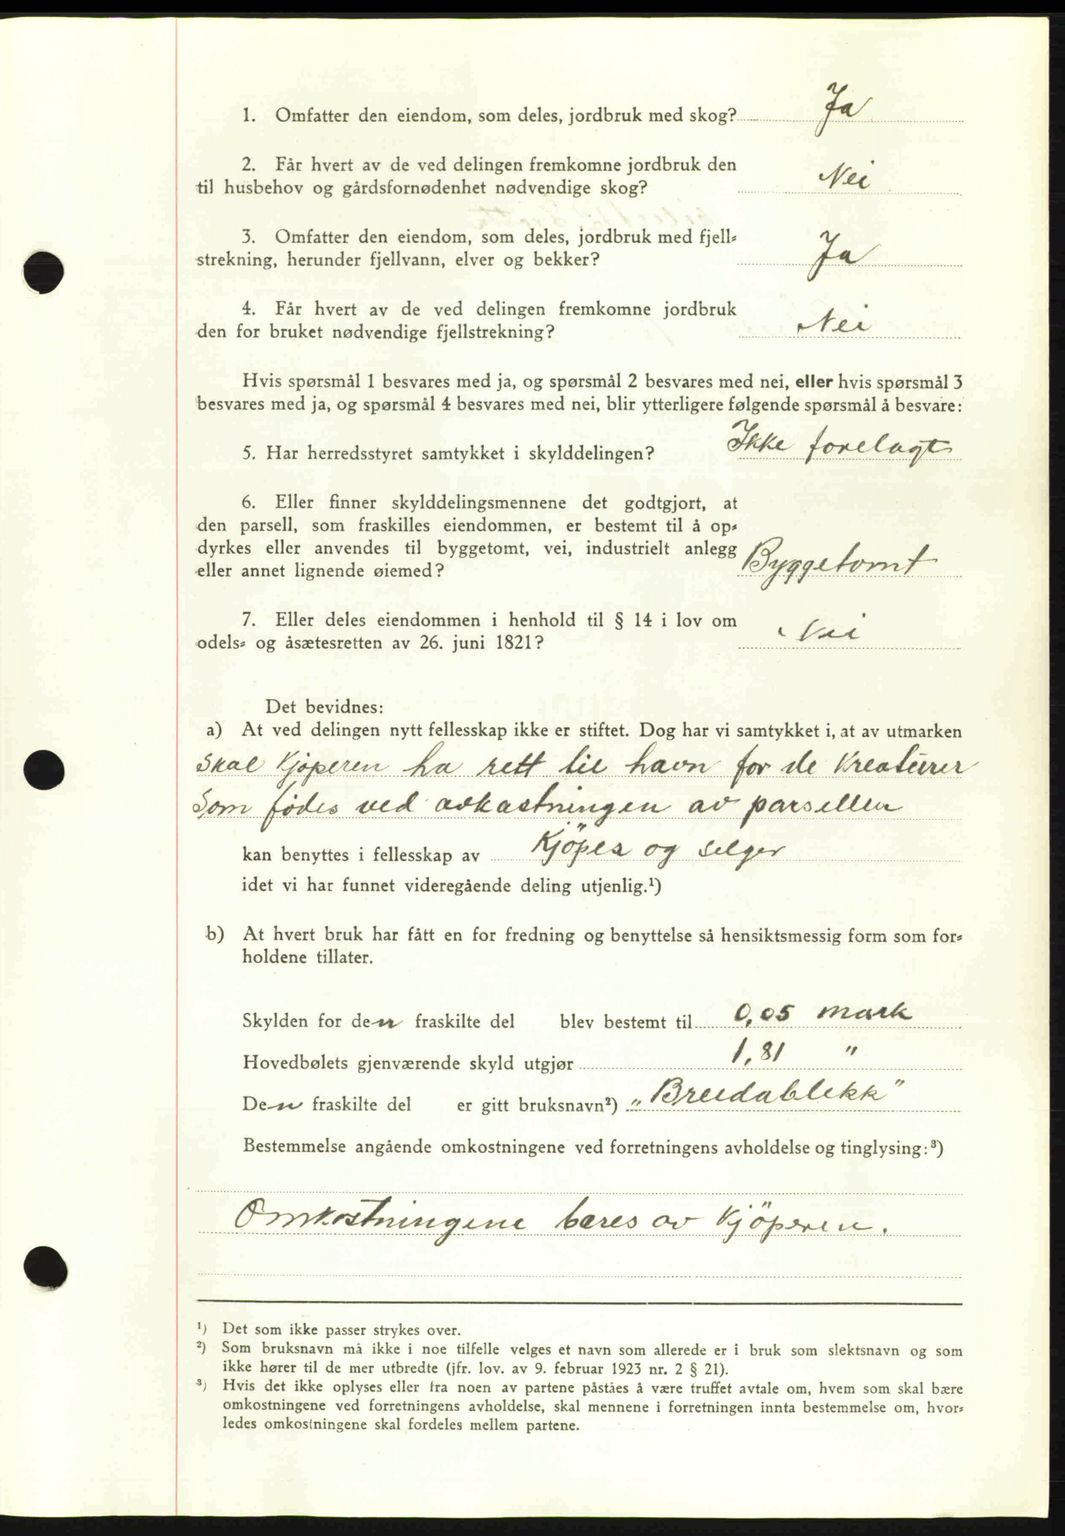 1. Omfatter den eiendom, som deles, jordbruk med skog? Ja
2. Får hvert av de ved delingen fremkomne jordbruk den
til husbehov og gårdsfornødenhet nødvendige skog? Nei
3. Omfatter den eiendom, som deles, jordbruk med fjell-
strekning, herunder fjellvann, elver og bekker? Ja
4. Får hvert av de ved delingen fremkomne jordbruk
den for bruket nødvendige fjellstrekning? Nei
Hvis spørsmål 1 besvares med ja, og spørsmål 2 besvares med nei, eller hvis spørsmål 3
besvares med ja, og spørsmål 4 besvares med nei, blir ytterligere følgende spørsmål å besvare:
5. Har herredsstyret samtykket i skylddelingen? Ikke forelagt
6. Eller finner skylddelingsmennene det godtgjort, at
den parsell, som fraskilles eiendommen, er bestemt til å op-
dyrkes eller anvendes til byggetomt, vei, industrielt anlegg
eller annet lignende øiemed? Byggetomt
7. Eller deles eiendommen i henhold til § 14 i lov om
odels- og åsætesretten av 26. juni 1821? Nei
Det bevidnes:
a) At ved delingen nytt fellesskap ikke er stiftet. Dog har vi samtykket i, at av utmarken
skal Kjøperen ha rett til havn for de Kreaturer
Som fødes ved avkastningen av parsellen
kan benyttes i fellesskap av Kjöper og selger
idet vi har funnet videregående deling utjenlig.¹)
b) At hvert bruk har fått en for fredning og benyttelse så hensiktsmessig form som for-
holdene tillater.
Skylden for den fraskilte del blev bestemt til 0,05 mark
Hovedbølets gjenværende skyld utgjør 1,81 "
Den fraskilte del er gitt bruksnavn²) „Breidablikk"
Bestemmelse angående omkostningene ved forretningens avholdelse og tinglysing:³)
Omkostningene bæres av Kjöperen.
¹) Det som ikke passer strykes over.
²) Som bruksnavn må ikke i noe tilfelle velges et navn som allerede er i bruk som slektsnavn og som
ikke hører til de mer utbredte (jfr. lov. av 9. februar 1923 nr. 2 § 21).
³) Hvis det ikke oplyses eller fra noen av partene påståes å være truffet avtale om, hvem som skal bære
omkostningene ved forretningens avholdelse, skal mennene i forretningen innta bestemmelse om, hvor-
ledes omkostningene skal fordeles mellem partene.